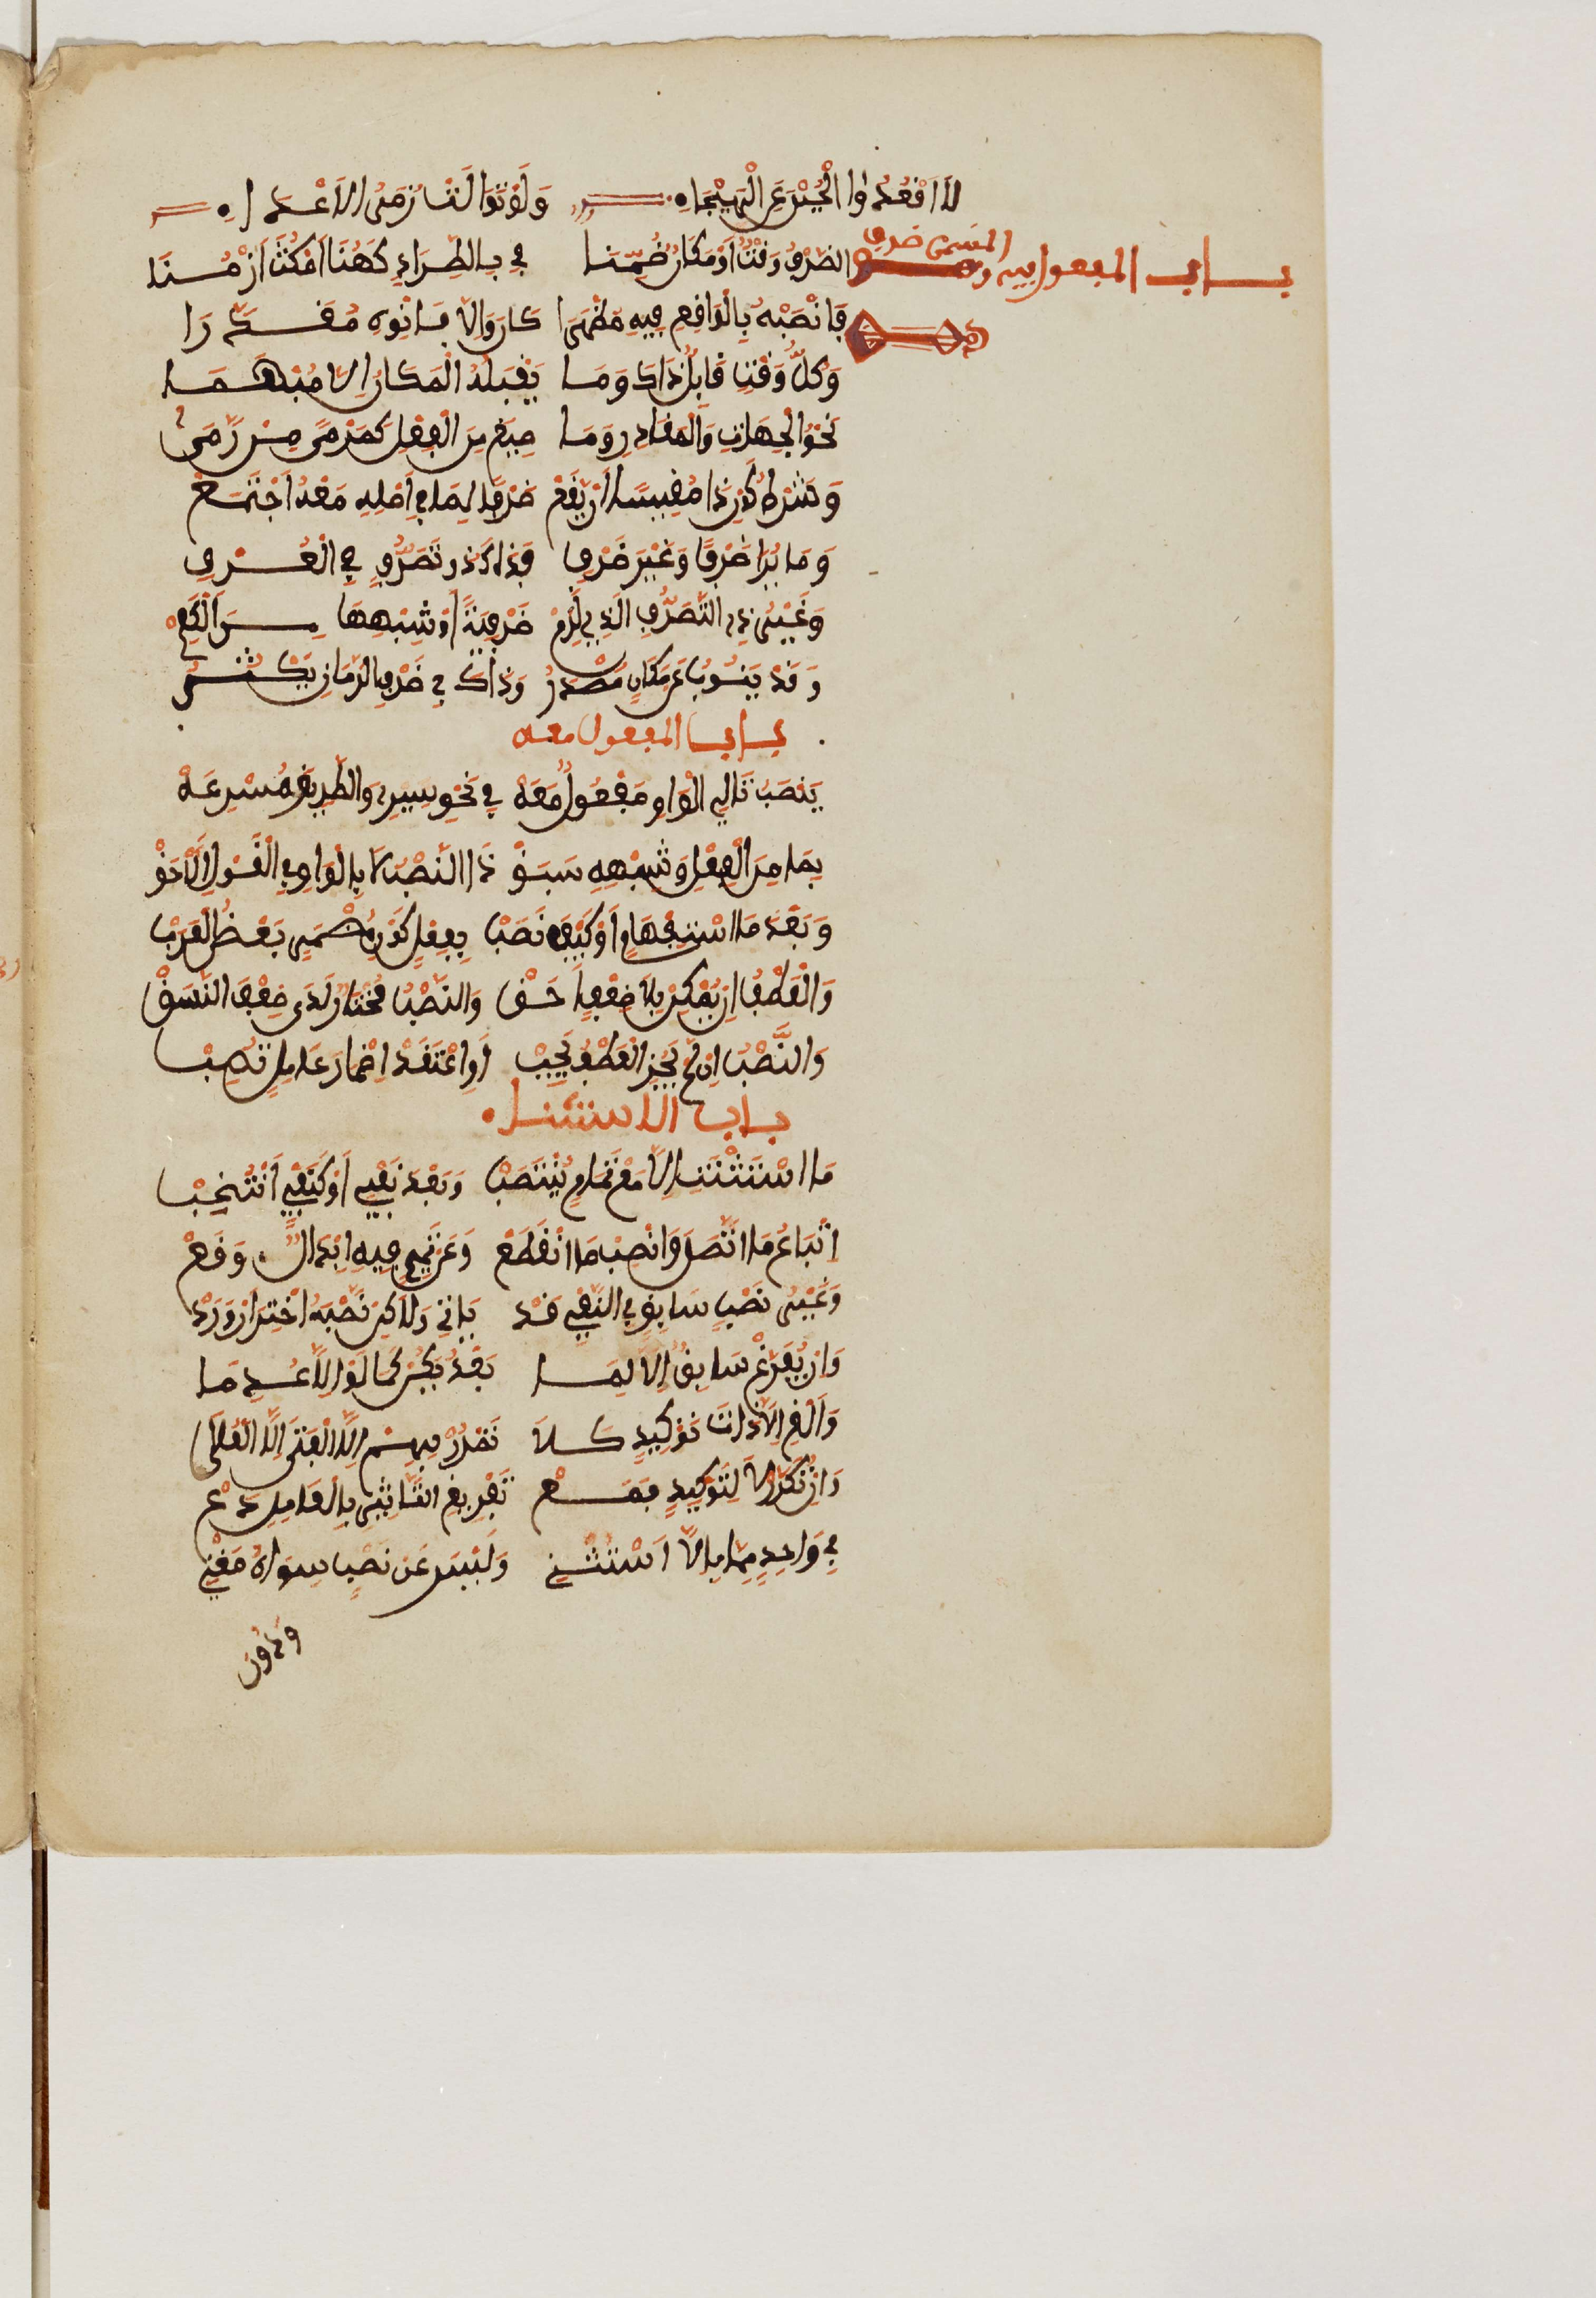 لَا اَقْعُدُ الْجُبْنَ عَنِ الْهَيْجَاءِ وَلَوْ تَوَالَتْ زُمَرُ الْاَعْدَاءِ
باب المفعول فيه وهو المسمى ظرفا
الظَّرْفُ وَقْتٌ اَوْ مَكَانٌ ضُمِّنَا فِي بِاطِّرَادٍ كَهُنَا امْكُثْ اَزْمُنَا
فَانْصِبْهُ بِالْوَاقِعِ فِيهِ مُظْهَرَا كَانَ وَاِلَّا فَانْوِهِ مُقَدَّرَا
وَكُلُّ وَقْتٍ قَابِلٌ ذَاكَ وَمَا يَقْبَلُهُ الْمَكَانُ اِلَّا مُبْهَمَا
نَحْوُ الْجِهَاتِ وَالْمَقَادِرِ وَمَا صِيغَ مِنَ الْفِعْلِ كَمَرْمًى مِنْ رَمَى
وَشَرْطُ كَوْنِ ذَا مَقِيسًا اَنْ يَقَعْ ظَرْفًا لِمَا فِي اَصْلِهِ مَعْهُ اجْتَمَعْ
وَمَا يُرَا ظَرْفًا وَغَيْرَ ظَرْفِ فَذَاكَ ذُو تَصَرُّفٍ فِي الْعُرْفِ
وَغَيْرُ ذِي التَّصَرُّفِ الَّذِي لَزِمْ ظَرْفِيَّةً اَوْ شِبْهَهَا مِنَ الْكَلِمْ
وَقَدْ يَنُوبُ عَنْ مَكَانٍ مَصْدَرُ وَذَاكَ فِي ظَرْفِ الزَّمَانِ يَكْثُرُ
باب المفعول معه
يُنْصَبُ تَالِي الْوَاوِ مَفْعُولًا مَعَهْ فِي نَحْوِ سِيرِي وَالطَّرِيقَ مُسْرِعَهْ
بِمَا مِنَ الْفِعْلِ وَشِبْهِهِ سَبَقْ ذَا النَّصْبُ لَا بِالْوَاوِ فِي الْقَوْلِ الْاَحَقْ
وَبَعْدَ مَا اسْتِفْهَامٍ اَوْ كَيْفَ نَصَبْ بِفِعْلِ كَوْنٍ مُضْمَرٍ بَعْضُ الْعَرَبْ
وَالْعَطْفُ اِنْ يُمْكِنْ بِلَا ضَعْفٍ اَحَقْ وَالنَّصْبُ مُخْتَارٌ لَدَى ضَعْفِ النَّسَقْ
وَالنَّصْبُ اِنْ لَمْ يَجُزِ الْعَطْفُ يَجِبْ اَوِ اعْتَقِدْ اِضْمَارَ عَامِلٍ تُصِبْ
باب الاستثناء
مَا اسْتَثْنَتِ اِلَّا مَعْ تَمَامٍ يَنْتَصِبْ وَبَعْدَ نَفْيٍ اَوْ كَنَفْيٍ انْتُخِبْ
اِتْبَاعُ مَا اتَّصَلَ وَانْصِبْ مَا انْقَطَعْ وَعَنْ تَمِيمٍ فِيهِ اِبْدَالٌ وَقَعْ
وَغَيْرُ نَصْبِ سَابِقٍ فِي النَّفْيِ قَدْ يَاتِي وَلَاكِنْ نَصْبَهُ اخْتَرْ اِنْ وَرَدْ
وَاِنْ يُفَرَّغْ سَابِقٌ اِلَّا لِمَا بَعْدُ يَكُنْ كَمَا لَوِ اِلَّا عُدِمَا
وَاَلْغِ اِلَّا ذَاتَ تَوْكِيدٍ كَلَا تَمْرُرْ بِهِمْ اِلَّا الْفَتَى اِلَّا الْعُلَا
وَاِنْ تُكَرَّرْ لَا لِتَوْكِيدٍ فَمَعْ تَفْرِيغٍ التَّاثِيرَ بِالْعَامِلِ دَعْ
فِي وَاحِدٍ مِمَّا بِاِلَّا اسْتُثْنِي وَلَيْسَ عَنْ نَصْبِ سِوَاهُ مُغْنِي
ودون